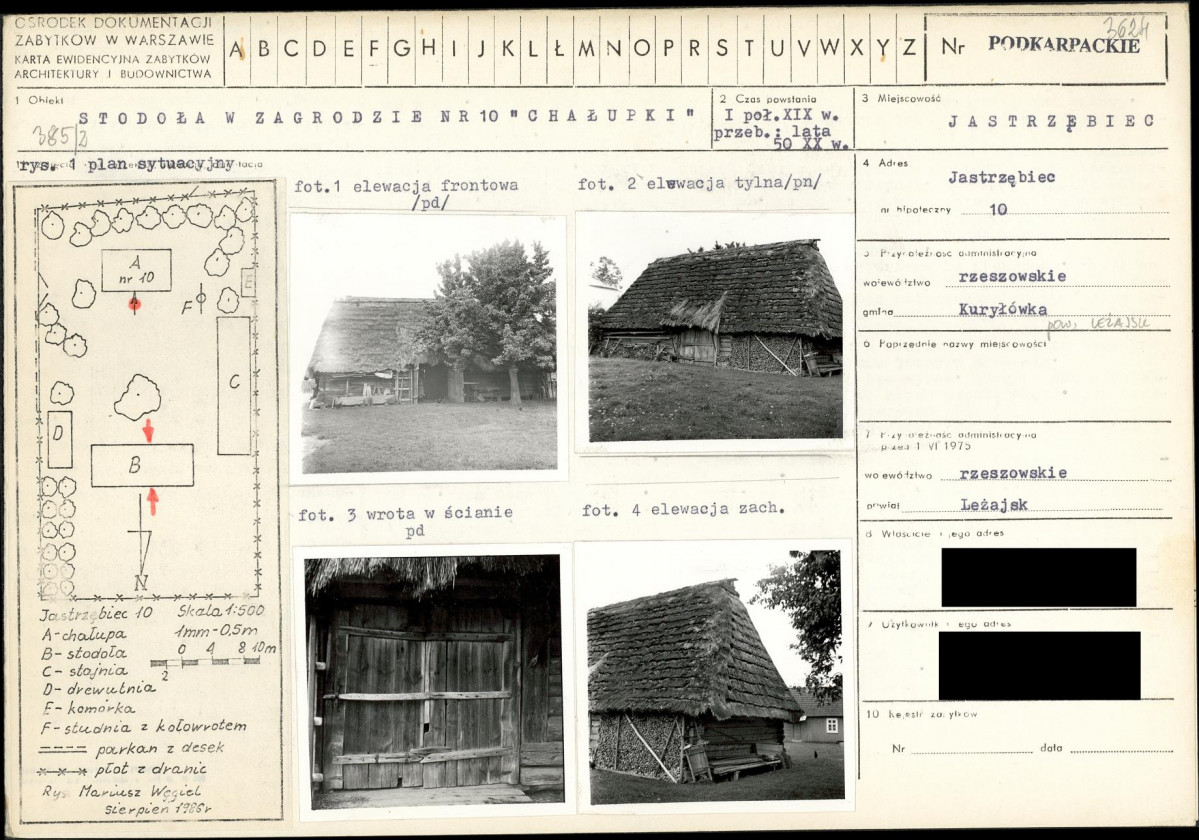 OŚRODEK DOKUMENTACJI
ZABYTKÓW W WARSZAWIE
KARTA EWIDENCYJNA ZABYTKÓW
ARCHITEKTURY I BUDOWNICTWA
A B C D E F G H I J K L Ł M N O P R S T U V W X Y Z
Nr PODKARPACKIE
3624
1 Obiekt
STODOŁA W ZAGRODZIE NR 10 "CHAŁUPKI"
385/2
2 Czas powstania
I poł.XIX w.
przeb.: lata
50 XX w.
3 Miejscowość
JASTRZĘBIEC
rys. 1 plan sytuacyjny
fot.1 elewacja frontowa
/pd/
fot. 2 elewacja tylna/pn/
fot. 3 wrota w ścianie
pd
fot. 4 elewacja zach.
A
nr 10
E
F
C
D
B
N
Jastrzębiec 10 Skala 1:500
A-chałupa 1mm-0,5m
B-stodoła 0 4 8 10m
C-stajnia 2
D-drewutnia
E-komórka
F-studnia z kołowrotem
parkan z desek
płot z dranic
Rys. Mariusz Węgiel
sierpień 1986r
4 Adres
Jastrzębiec
nr hipoteczny 10
5 Przynależność administracyjna
województwo rzeszowskie
gmina Kuryłówka
pow. LEŻAJSK
6 Poprzednie nazwy miejscowości
7 Przynależność administracyjna
przed 1 VI 1975
województwo rzeszowskie
powiat Leżajsk
8 Właściciel i jego adres
9 Użytkownik i jego adres
10 Rejestr zabytków
Nr data